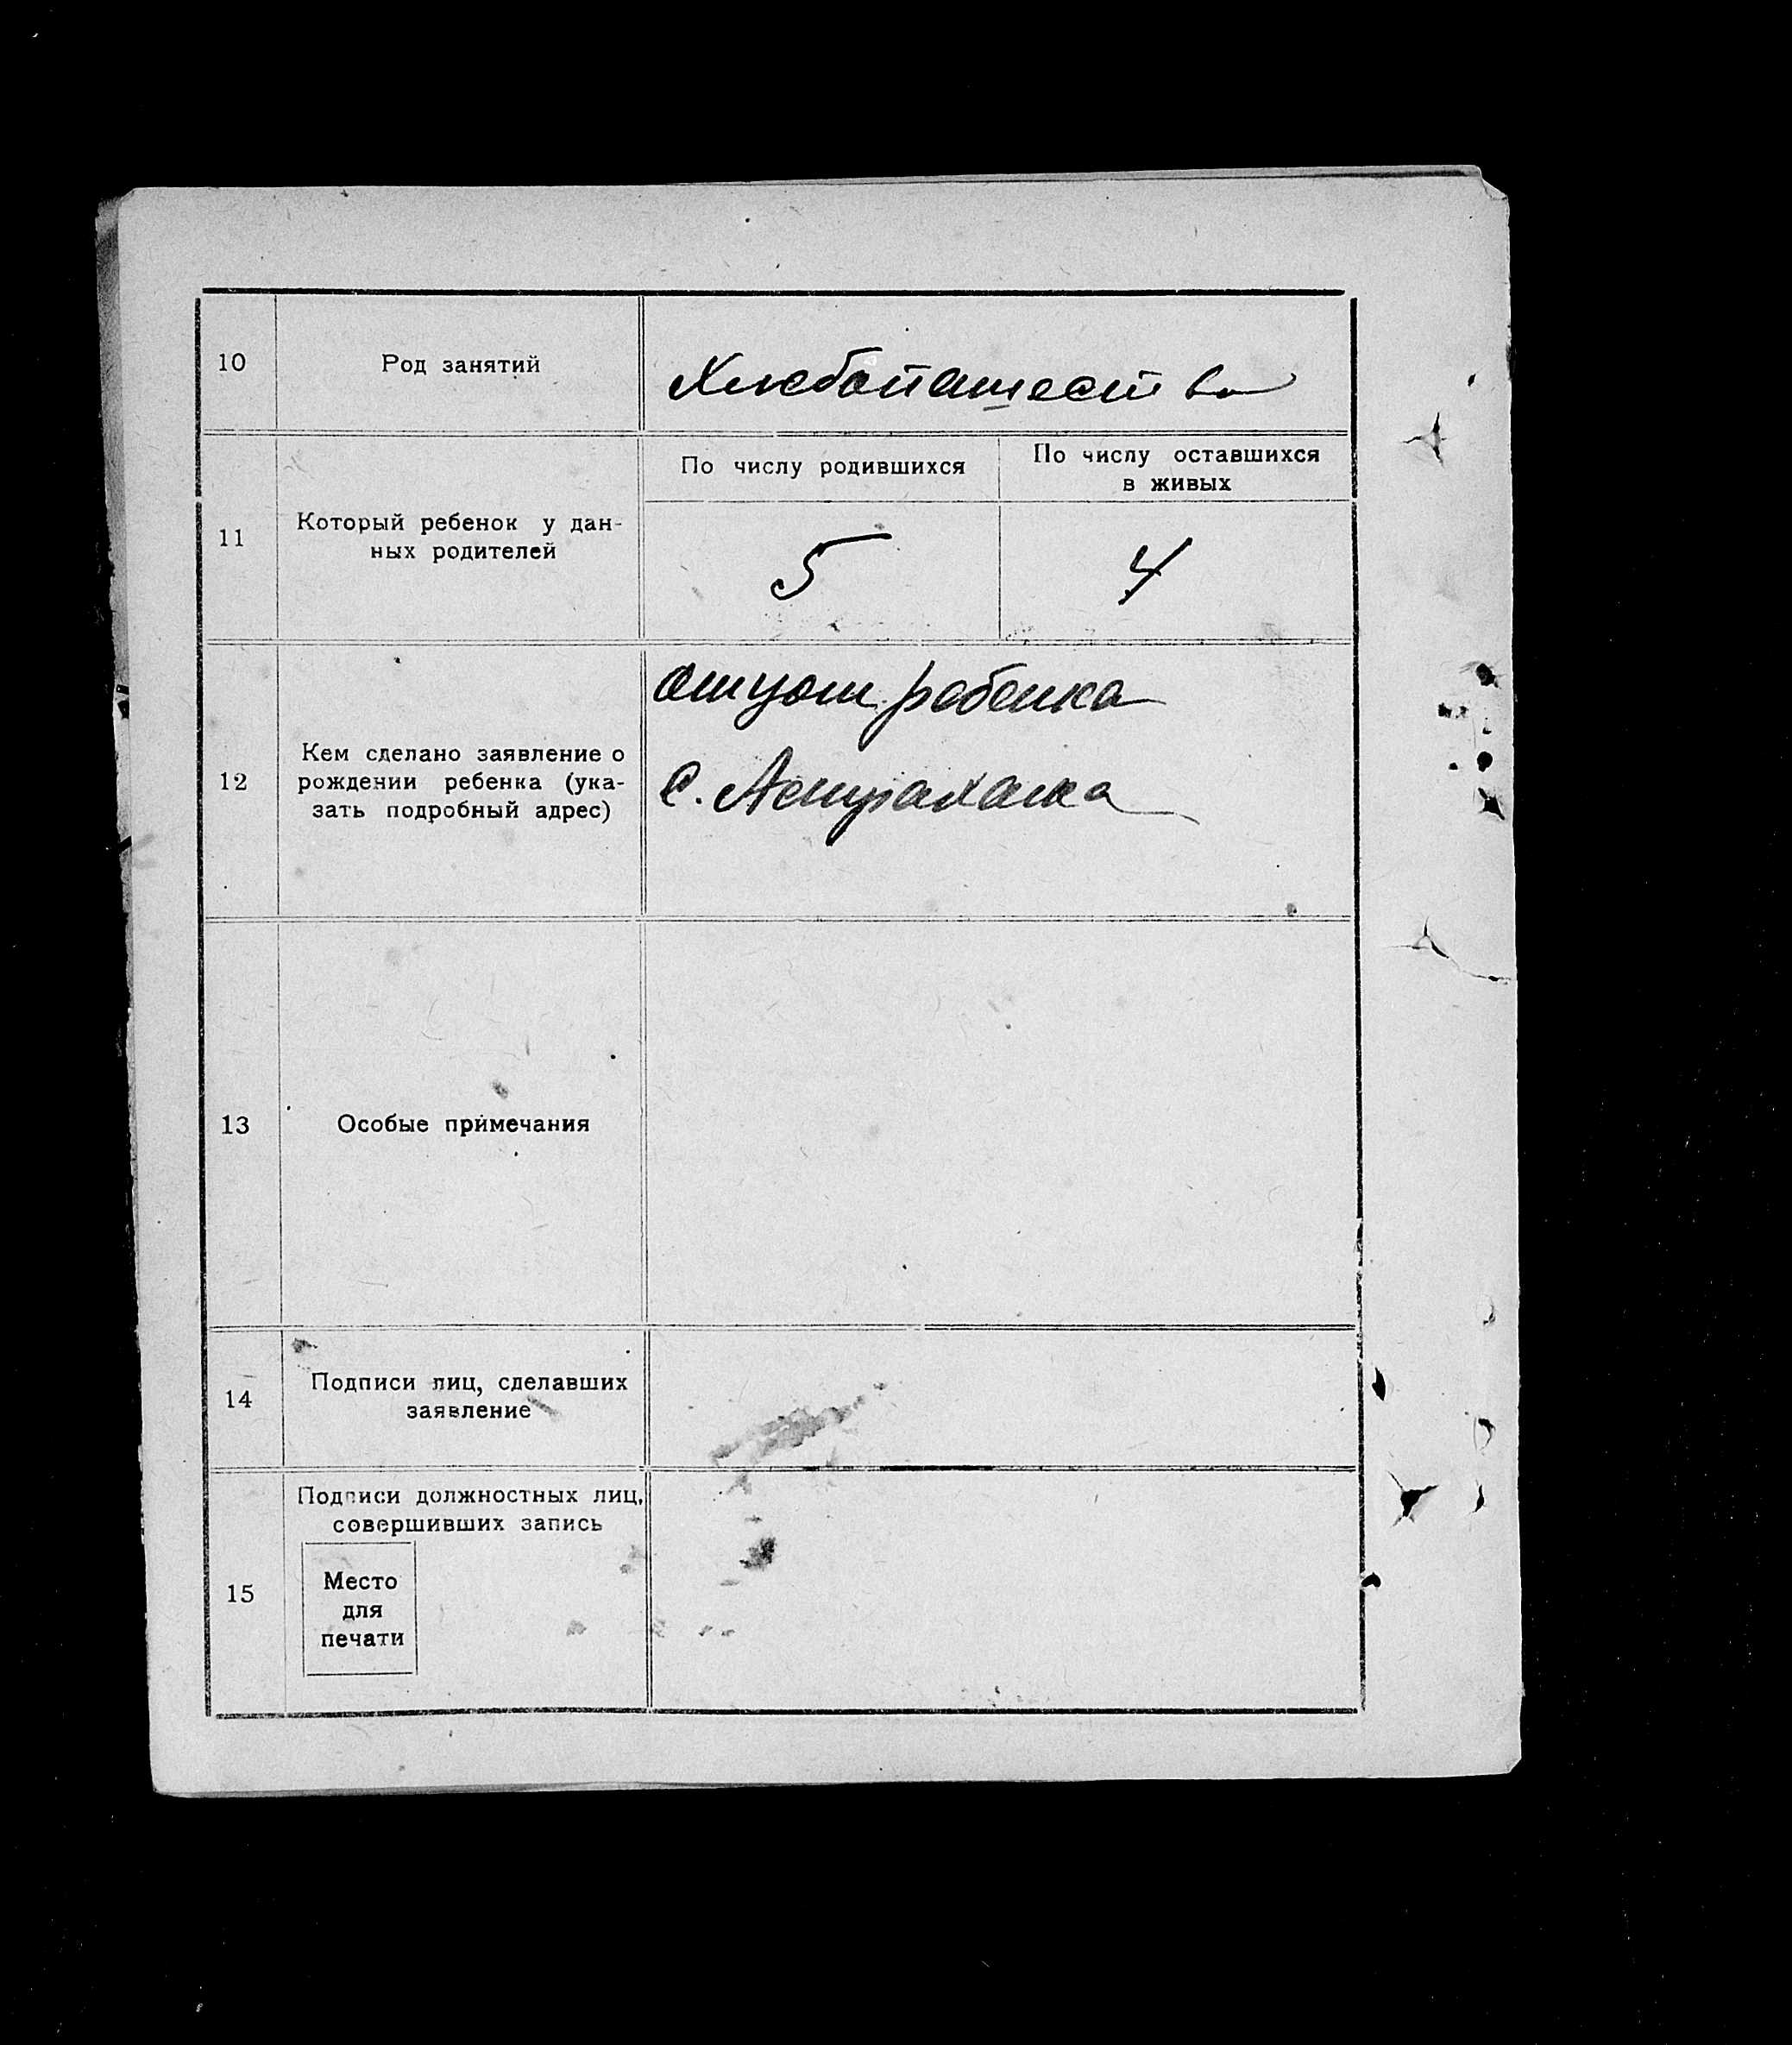 10
Род занятий
Хлебопашество
11
Который ребенок у дан-
ных родителей
По числу родившихся
По числу оставшихся
в живых
5
4
12
Кем сделано заявление о
рождении ребенка (ука-
зать подробный адрес)
отцом ребенка
С. Астраханка
13
Особые примечания
14
Подписи лиц, сделавших
заявление
15
Подписи должностных лиц,
совершивших запись
Место
для
печати